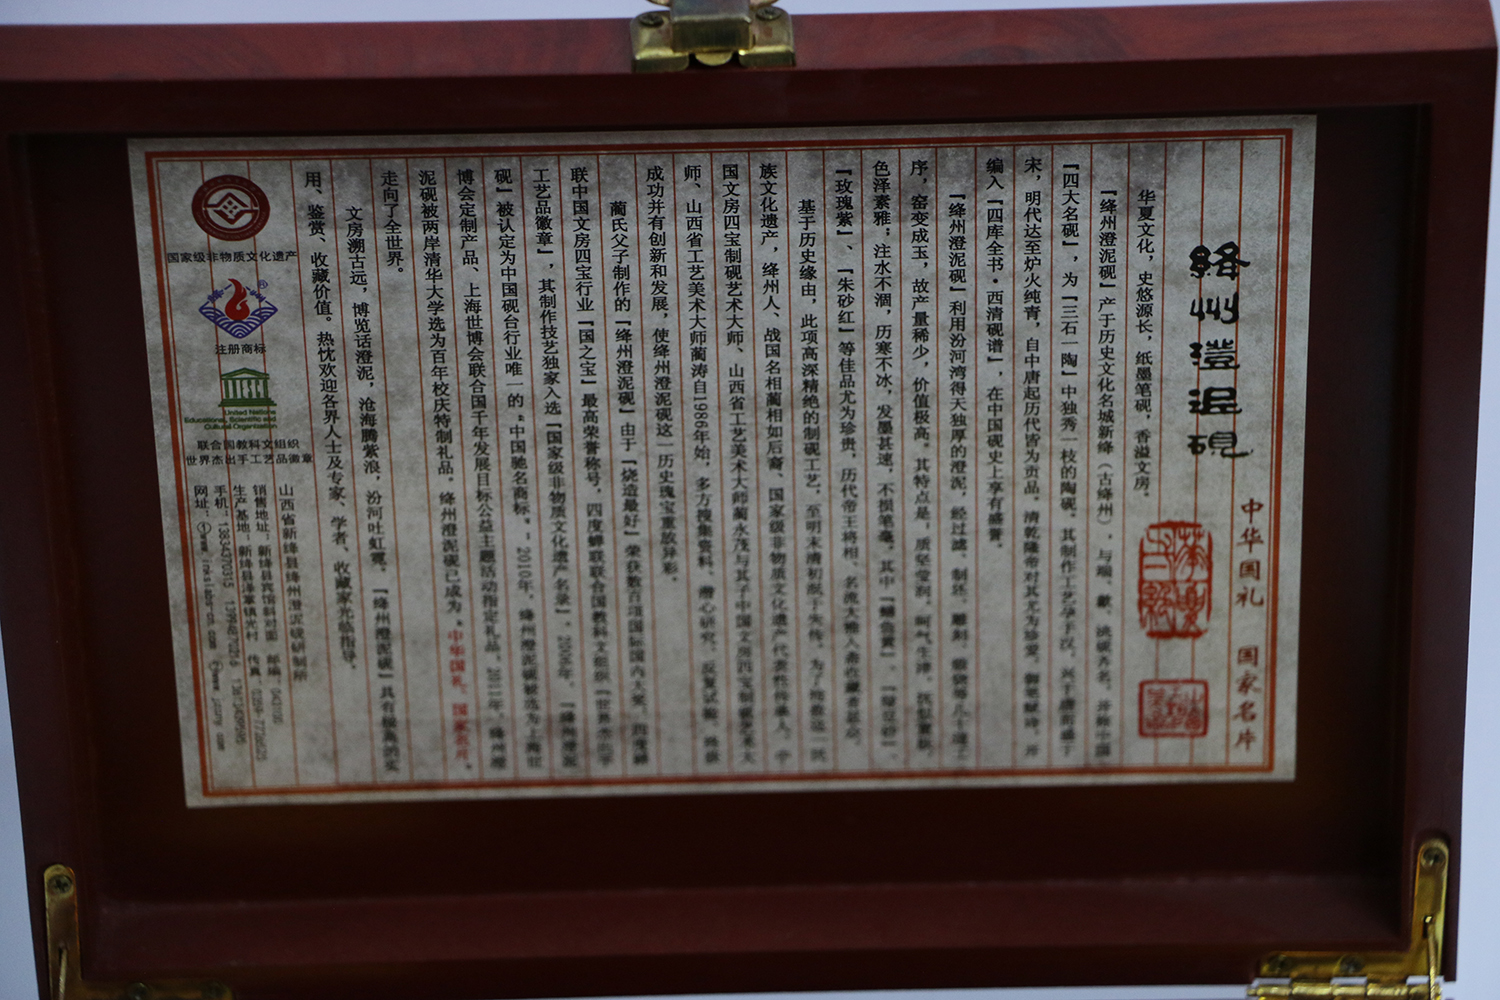 绛州澄泥砚
中华国礼 国家名片
华夏文化，史悠源长，纸墨笔砚，香溢文房。
『绛州澄泥砚』产于历史文化名城新绛（古绛州），与端、歙、洮砚齐名，并称中国
『四大名砚』，为『三石一陶』中独秀一枝的陶砚。其制作工艺孕于汉，兴于唐而盛于
宋，明代达至炉火纯青，自中唐起历代皆为贡品。清乾隆帝对其尤为珍爱，御笔赋诗，并
编入『四库全书·西清砚谱』，在中国砚史上享有盛誉。
『绛州澄泥砚』利用汾河湾得天独厚的澄泥，经过滤、制坯、雕刻、煅烧等几十道工
序，窑变成玉，故产量稀少，价值极高。其特点是，质坚莹润，呵气生津，抚似童肤，
色泽素雅；注水不涸，历寒不冰，发墨甚速，不损笔毫。其中『鳝鱼黄』、『绿豆砂』、
『玫瑰紫』、『朱砂红』等佳品尤为珍贵，历代帝王将相、名流大雅人斋收藏者甚众。
基于历史缘由，此项高深精绝的制砚工艺，至明末清初泯于失传。为了抢救这一民
族文化遗产，绛州人、战国名相蔺相如后裔、国家级非物质文化遗产代表性传承人、中
国文房四宝制砚艺术大师、山西省工艺美术大师蔺永茂与其子中国文房四宝制砚艺术大
师、山西省工艺美术大师蔺涛自1986年始，多方搜集资料，潜心研究，反复试验，终获
成功并有创新和发展，使绛州澄泥砚这一历史瑰宝重放异彩。
蔺氏父子制作的『绛州澄泥砚』由于『烧造最好』荣获数百项国际国内大奖，四度蝉
联中国文房四宝行业『国之宝』最高荣誉称号，四度蝉联联合国教科文组织『世界杰出手
工艺品徽章』，其制作技艺独家入选『国家级非物质文化遗产名录』，2006年，『绛州澄泥
砚』被认定为中国砚台行业唯一的“中国驰名商标”；2010年，绛州澄泥砚被选为上海世
博会定制产品、上海世博会联合国千年发展目标公益主题活动指定礼品。2011年，绛州澄
泥砚被两岸清华大学选为百年校庆特制礼品。绛州澄泥砚已成为“中华国礼，国家名片”，
走向了全世界。
文房溯古远，博览话澄泥，沧海腾紫浪，汾河吐虹霓。『绛州澄泥砚』具有极高的实
用、鉴赏、收藏价值。热忱欢迎各界人士及专家、学者、收藏家光临指导。
国家级非物质文化遗产
注册商标
United Nations
Educational, Scientific and
Cultural Organization
联合国教科文组织
世界杰出手工艺品徽章
山西省新绛县绛州澄泥砚研制所
销售地址：新绛县宾馆斜对面 邮编：043100
生产基地：新绛县泽掌镇光村 传真：
手机：
网址：